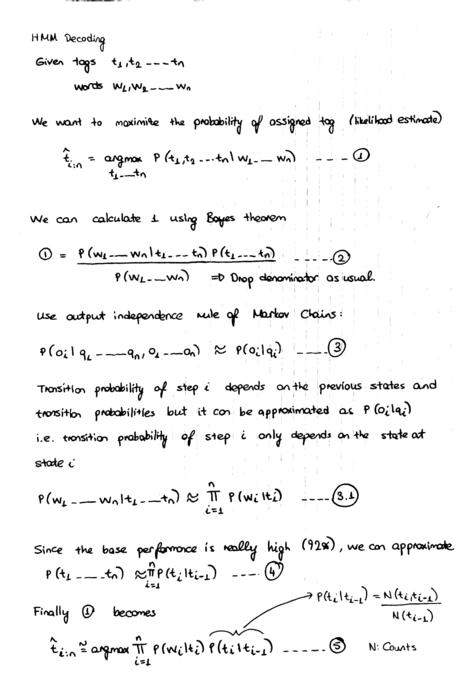 HMM Decoding
Given tags t₁,t₂ ---- tₙ
words W₁,W₂ ---- Wₙ
We want to maximize the probability of assigned tag (likelihood estimate)
t̂ᵢ:ₙ = argmax P(t₁,t₂ ---tₙ| W₁ --- Wₙ) --- ①
t₁---tₙ
We can calculate 1 using Bayes theorem
① = P(W₁ --- Wₙ|t₁ --- tₙ) P(t₁ --- tₙ) ---- ②
P(W₁ --- Wₙ) ⇒ Drop denominator as usual.
Use output independence rule of Markov Chains:
P(oᵢ|q₁ ---- qₙ, o₁ --- oₙ) ≈ P(oᵢ|qᵢ) ---- ③
Transition probability of step i depends on the previous states and
transition probabilities but it can be approximated as P(oᵢ|qᵢ)
i.e. transition probability of step i only depends on the state at
state i
P(W₁ --- Wₙ|t₁ --- tₙ) ≈ ∏ᵢ₌₁ⁿ P(wᵢ|tᵢ) ---- ③.1
Since the base performance is really high (92%), we can approximate
P(t₁ ---- tₙ) ≈ ∏ᵢ₌₁ⁿ P(tᵢ|tᵢ₋₁) ---- ④
Finally ① becomes
→ P(tᵢ|tᵢ₋₁) = N(tᵢ,tᵢ₋₁)
N(tᵢ₋₁)
t̂ᵢ:ₙ ≈ argmax ∏ᵢ₌₁ⁿ P(wᵢ|tᵢ) P(tᵢ|tᵢ₋₁) ----- ⑤ N: Counts